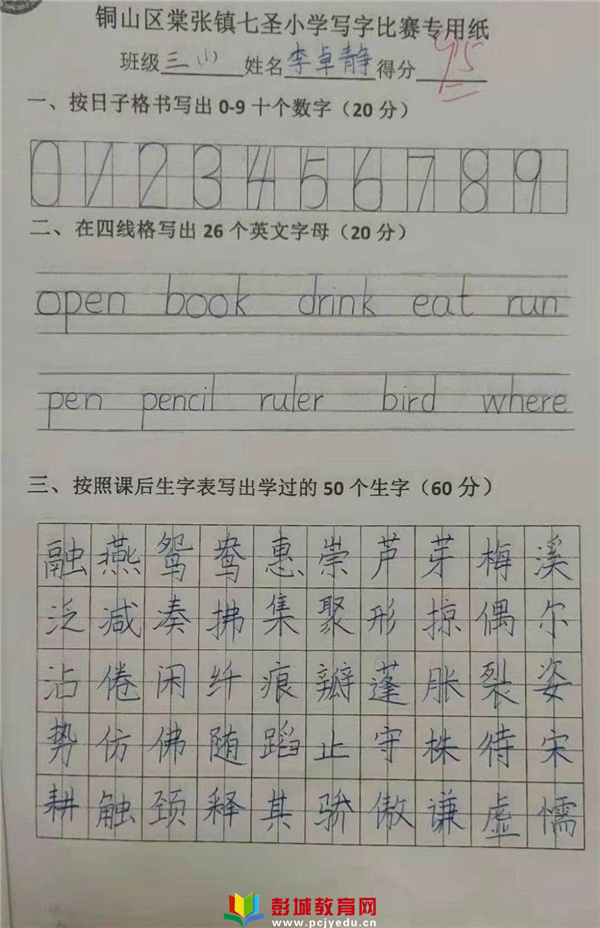 铜山区棠张镇七圣小学写字比赛专用纸
班级三(1) 姓名李卓静得分95
一、按日子格书写出 0-9 十个数字（20 分）
0 1 2 3 4 5 6 7 8 9
二、在四线格写出 26 个英文字母（20 分）
open book drink eat run
pen pencil ruler bird where
三、按照课后生字表写出学过的 50 个生字（60 分）
融 燕 鸳 鸯 惠 崇 芦 芽 梅 溪
泛 减 凑 拂 集 聚 形 掠 偶 尔
沾 倦 闲 纤 痕 瓣 蓬 胀 裂 姿
势 仿 佛 随 蹈 止 守 株 待 宋
耕 触 颈 释 其 骄 傲 谦 虚 懦
彭城教育网
www.pcjyedu.cn